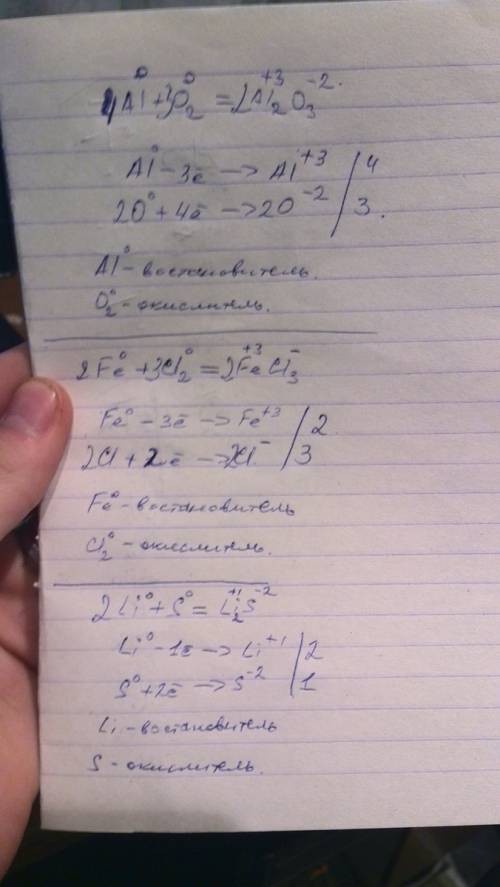 4Al⁰ + 3O₂⁰ = 2Al₂⁺³O₃⁻².
Al⁰ - 3ē → Al⁺³ / 4
2O⁰ + 4ē → 2O⁻² / 3.
Al⁰ - востановитель.
O₂⁰ - окислитель.
2Fe⁰ + 3Cl₂⁰ = 2Fe⁺³Cl₃⁻
Fe⁰ - 3ē → Fe⁺³ / 2
2Cl + 2ē → 2Cl⁻ / 3
Fe⁰ - востановитель
Cl₂⁰ - окислитель.
2Li⁰ + S⁰ = Li₂⁺¹S⁻²
Li⁰ - 1ē → Li⁺¹ | 2
S⁰ + 2ē → S⁻² | 1
Li - востановитель
S - окислитель.